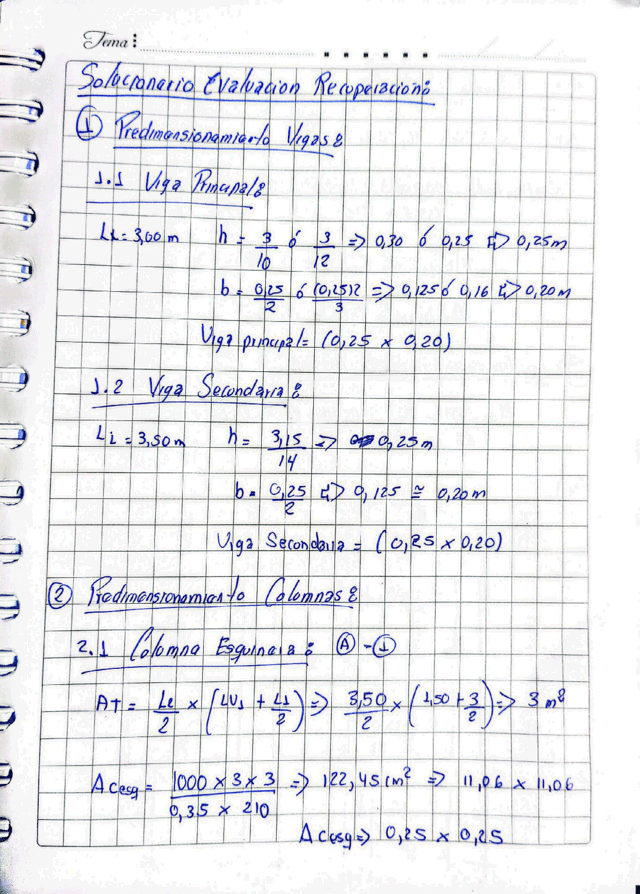 Tema:
Solucionario Evaluacion Recuperacion:
① Predimensionamiento Vigas:
1.1 Viga Principal:
Li = 3,00 m h = 3/10 ó 3/12 => 0,30 ó 0,25 => 0,25m
b = 0,25/2 ó (0,25)2/3 => 0,125 ó 0,16 => 0,20m
Viga principal = (0,25 x 0,20)
1.2 Viga Secondaria:
Li = 3,50 m h = 3,15/14 => 0,25m
b = 0,25/2 => 0,125 ≅ 0,20m
Viga Secondaria = (0,25 x 0,20)
② Predimensionamiento Columnas:
2.1 Columna Esquinera: Ⓐ-①
AT = /2 x (LV1 + L1/2) => 3,50/2 x (1,50 + 3/2) => 3 m²
Acesq = 1000 x 3 x 3/0,35 x 210 => 122,45 cm² => 11,06 x 11,06
Acesq => 0,25 x 0,25